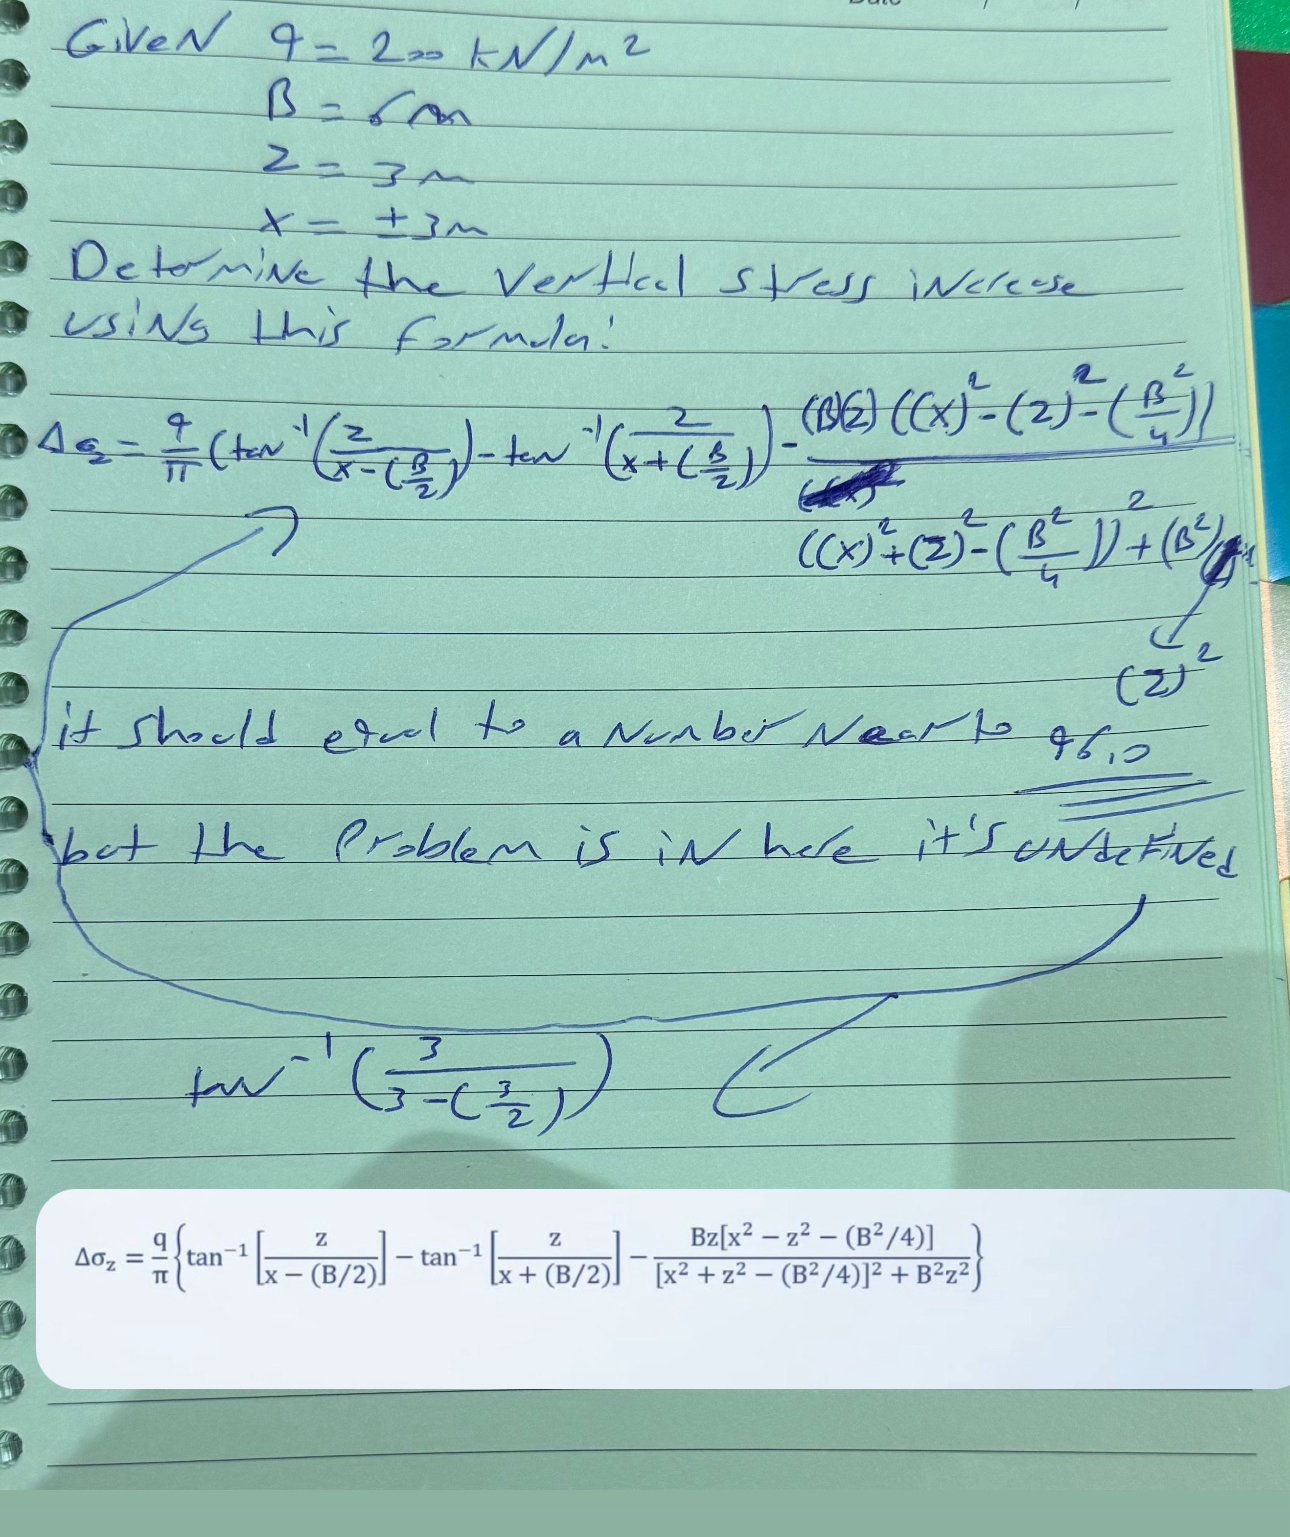 Given q = 200 kN/m²
B = 6m
z = 3m
x = ±3m
Determine the vertical stress increase
using this formula:
Δσz = q/π (tan⁻¹(z/(x-(B/2))) - tan⁻¹(z/(x+(B/2))) - (B)(z)((x)²-(z)²-(B²/4))/
((x)²+(z)²-(B²/4))²+(B²)
(z)²
it should equal to a number near to 96.0
but the problem is in here it's undefined
tan⁻¹(3/(3-(3/2)))
Δσz = q/π {tan⁻¹ [z/(x − (B/2)] − tan⁻¹ [z/(x + (B/2)] − Bz[x² − z² − (B²/4)]/([x² + z² − (B²/4)]² + B²z²)}